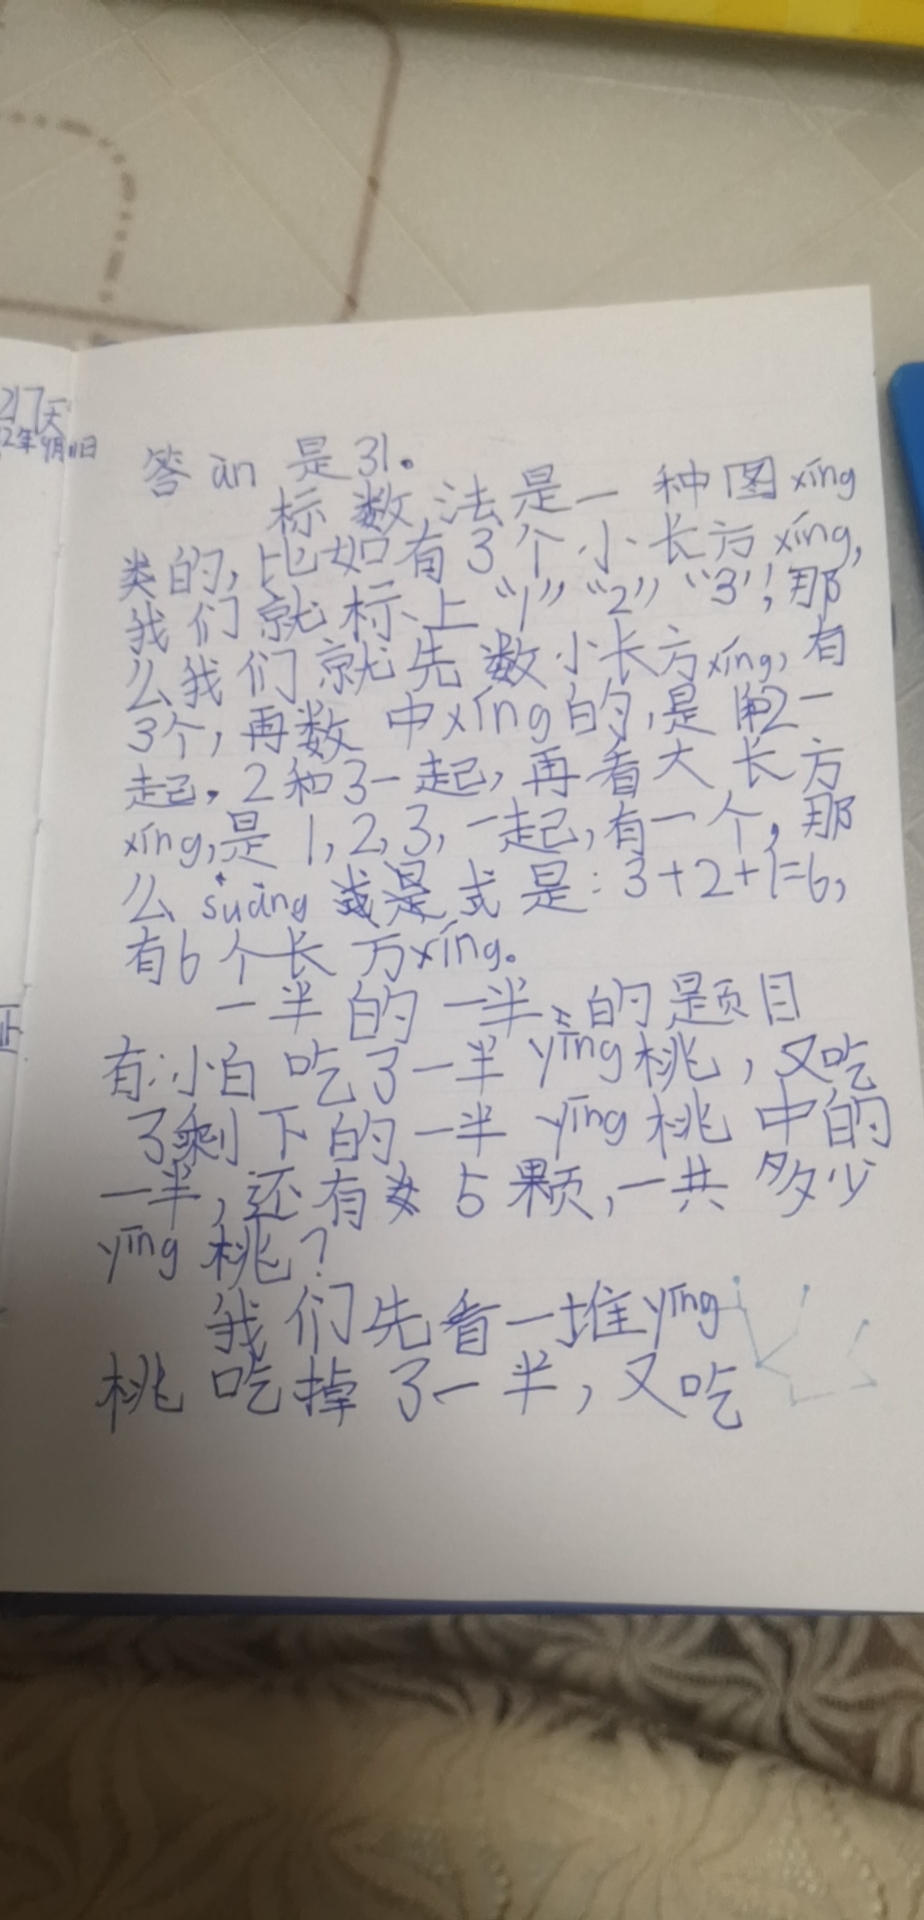 217天
2年9月11日
答àn是31。
标数法是一种图xíng
类的,比如有3个小长方xíng,
我们就标上“1”“2”“3”,那
么我们就先数小长方xíng,有
3个,再数中xíng的,是1和2一
起。2和3一起,再看大长方
xíng,是1,2,3,一起,有一个,那
么suàng式是:3+2+1=6,
有6个长方xíng。
一半的一半的题目
有:小白吃了一半yīng桃,又吃
了剩下的一半yīng桃中的
一半,还有5颗,一共多少
yīng桃?
我们先看一堆yīng
桃吃掉了一半,又吃